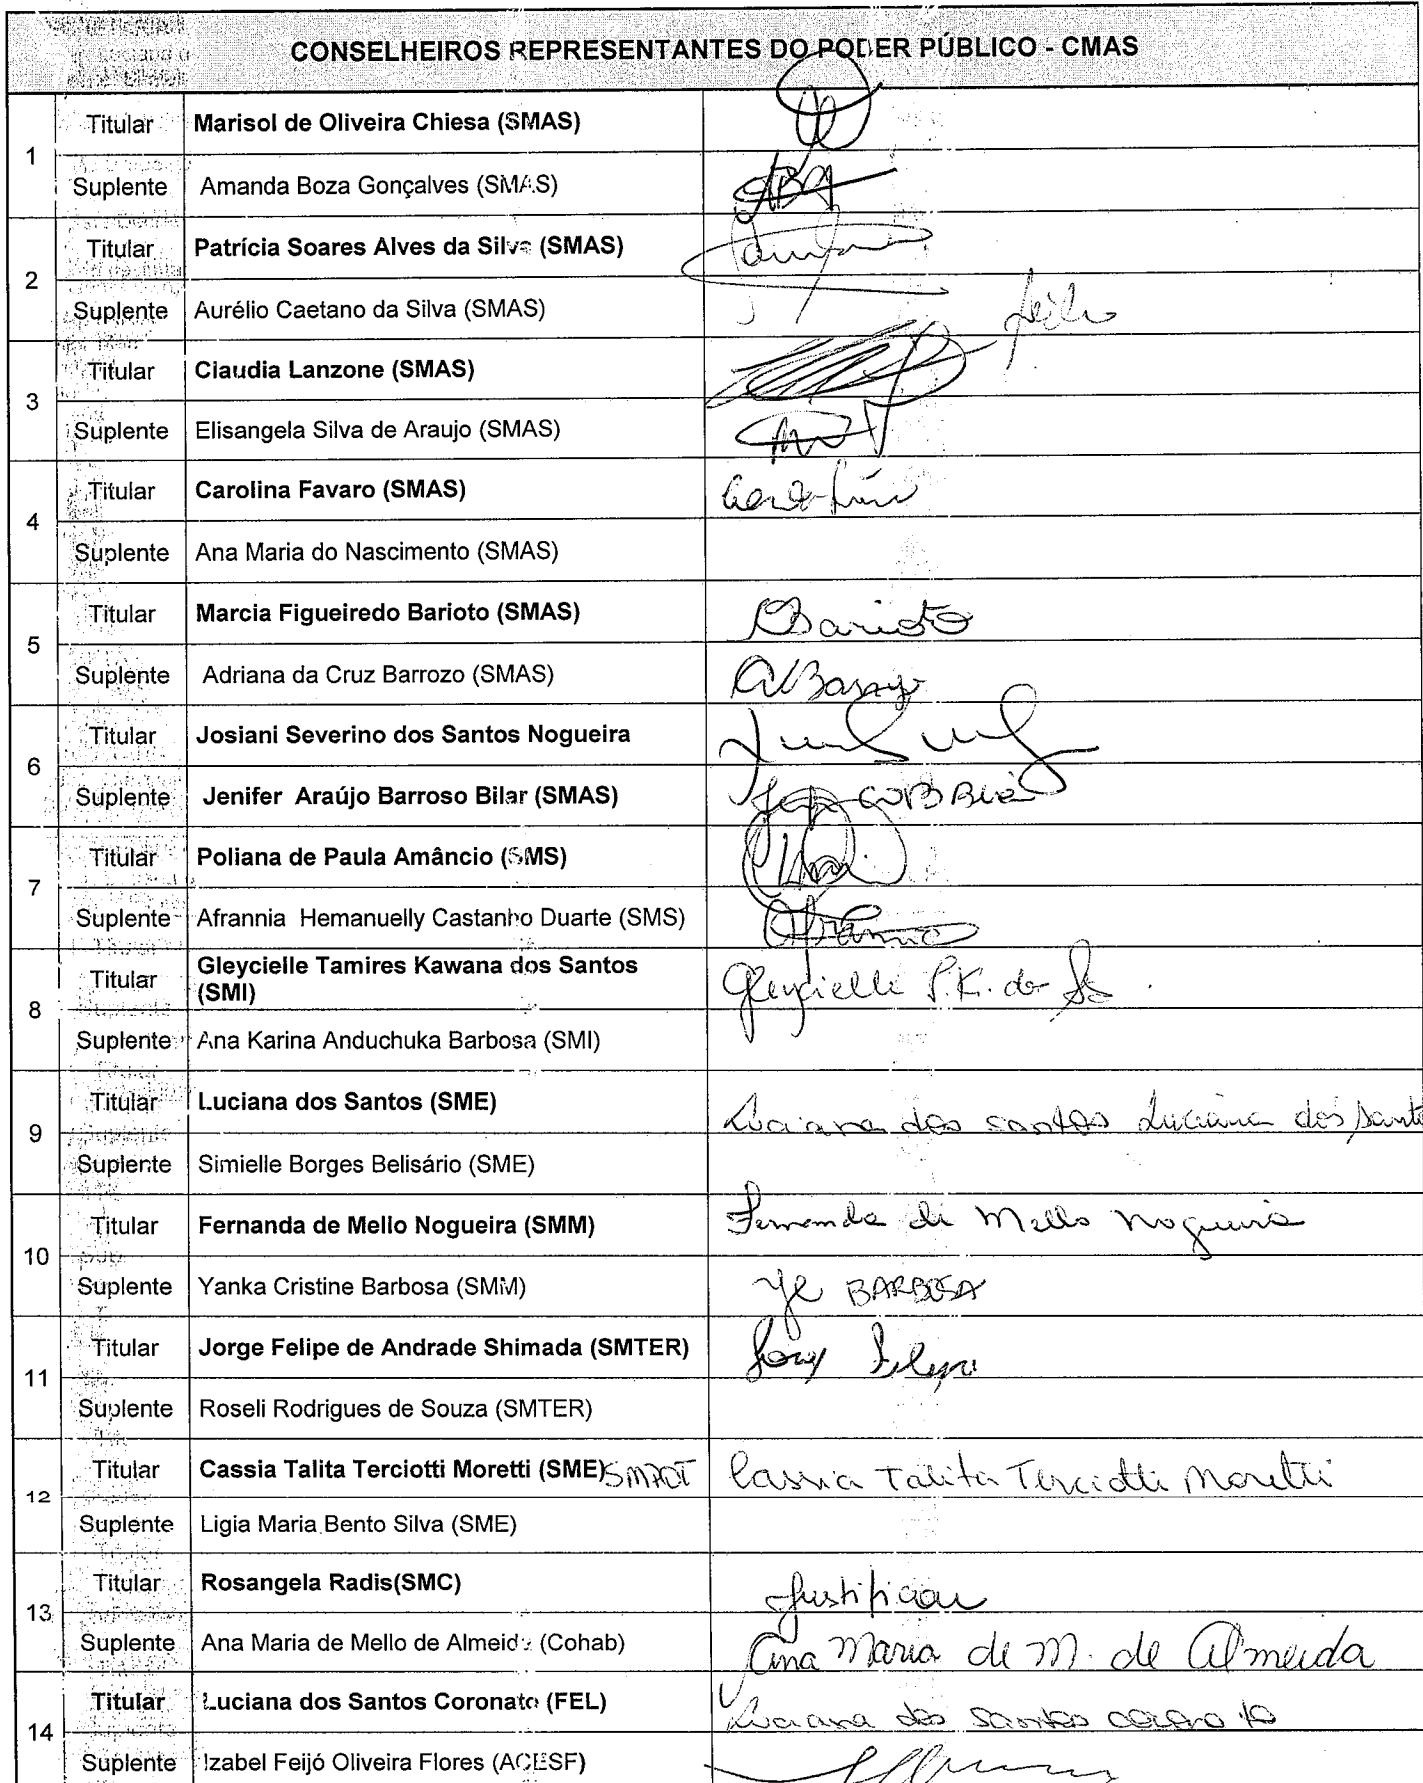 CONSELHEIROS REPRESENTANTES DO PODER PÚBLICO - CMAS
1
Titular Marisol de Oliveira Chiesa (SMAS)
Suplente Amanda Boza Gonçalves (SMAS)
2
Titular Patrícia Soares Alves da Silva (SMAS)
Suplente Aurélio Caetano da Silva (SMAS)
3
Titular Claudia Lanzone (SMAS)
Suplente Elisangela Silva de Araujo (SMAS)
4
Titular Carolina Favaro (SMAS)
Suplente Ana Maria do Nascimento (SMAS)
5
Titular Marcia Figueiredo Barioto (SMAS) Barioto
Suplente Adriana da Cruz Barrozo (SMAS)
6
Titular Josiani Severino dos Santos Nogueira
Suplente Jenifer Araújo Barroso Bilar (SMAS)
7
Titular Poliana de Paula Amâncio (SMS)
Suplente Afrannia Hemanuelly Castanho Duarte (SMS)
8
Titular Gleycielle Tamires Kawana dos Santos
(SMI) Gleycielle T.K. dos
Suplente Ana Karina Anduchuka Barbosa (SMI)
9
Titular Luciana dos Santos (SME) Luciana dos santos Luciana dos Santo
Suplente Simielle Borges Belisário (SME)
10
Titular Fernanda de Mello Nogueira (SMM) Fernanda de Mello Nogueira
Suplente Yanka Cristine Barbosa (SMM) YC BARBOSA
11
Titular Jorge Felipe de Andrade Shimada (SMTER) Jorge Felipe
Suplente Roseli Rodrigues de Souza (SMTER)
12
Titular Cassia Talita Terciotti Moretti (SME) Cassia Talita Terciotti Moretti
Suplente Ligia Maria Bento Silva (SME)
13
Titular Rosangela Radis(SMC) Justificou
Suplente Ana Maria de Mello de Almeida (Cohab) Ana Maria de M. de Almeida
14
Titular Luciana dos Santos Coronato (FEL) Luciana dos Santos Coronato
Suplente Izabel Feijó Oliveira Flores (ACESF)